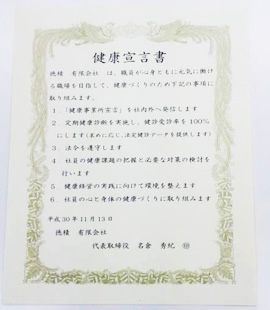 健康宣言書
徳積 有限会社 は、職員が心身ともに元気に働け
る職場を目指して、健康づくりのため下記の事項に
取り組みます。
1.「健康事業所宣言」を社内外へ発信します
2 定期健康診断を実施し、健診受診率を100%
にします(求めに応じ、法定健診データを提供します)
3. 法令を遵守します
4 社員の健康課題の把握と必要な対策の検討を
行います
5 健康経営の実践に向けて環境を整えます
6. 社員の心と身体の健康づくりに取り組みます
平成30年11月13日
徳積 有限会社
代表取締役 名倉 秀紀 ㊞